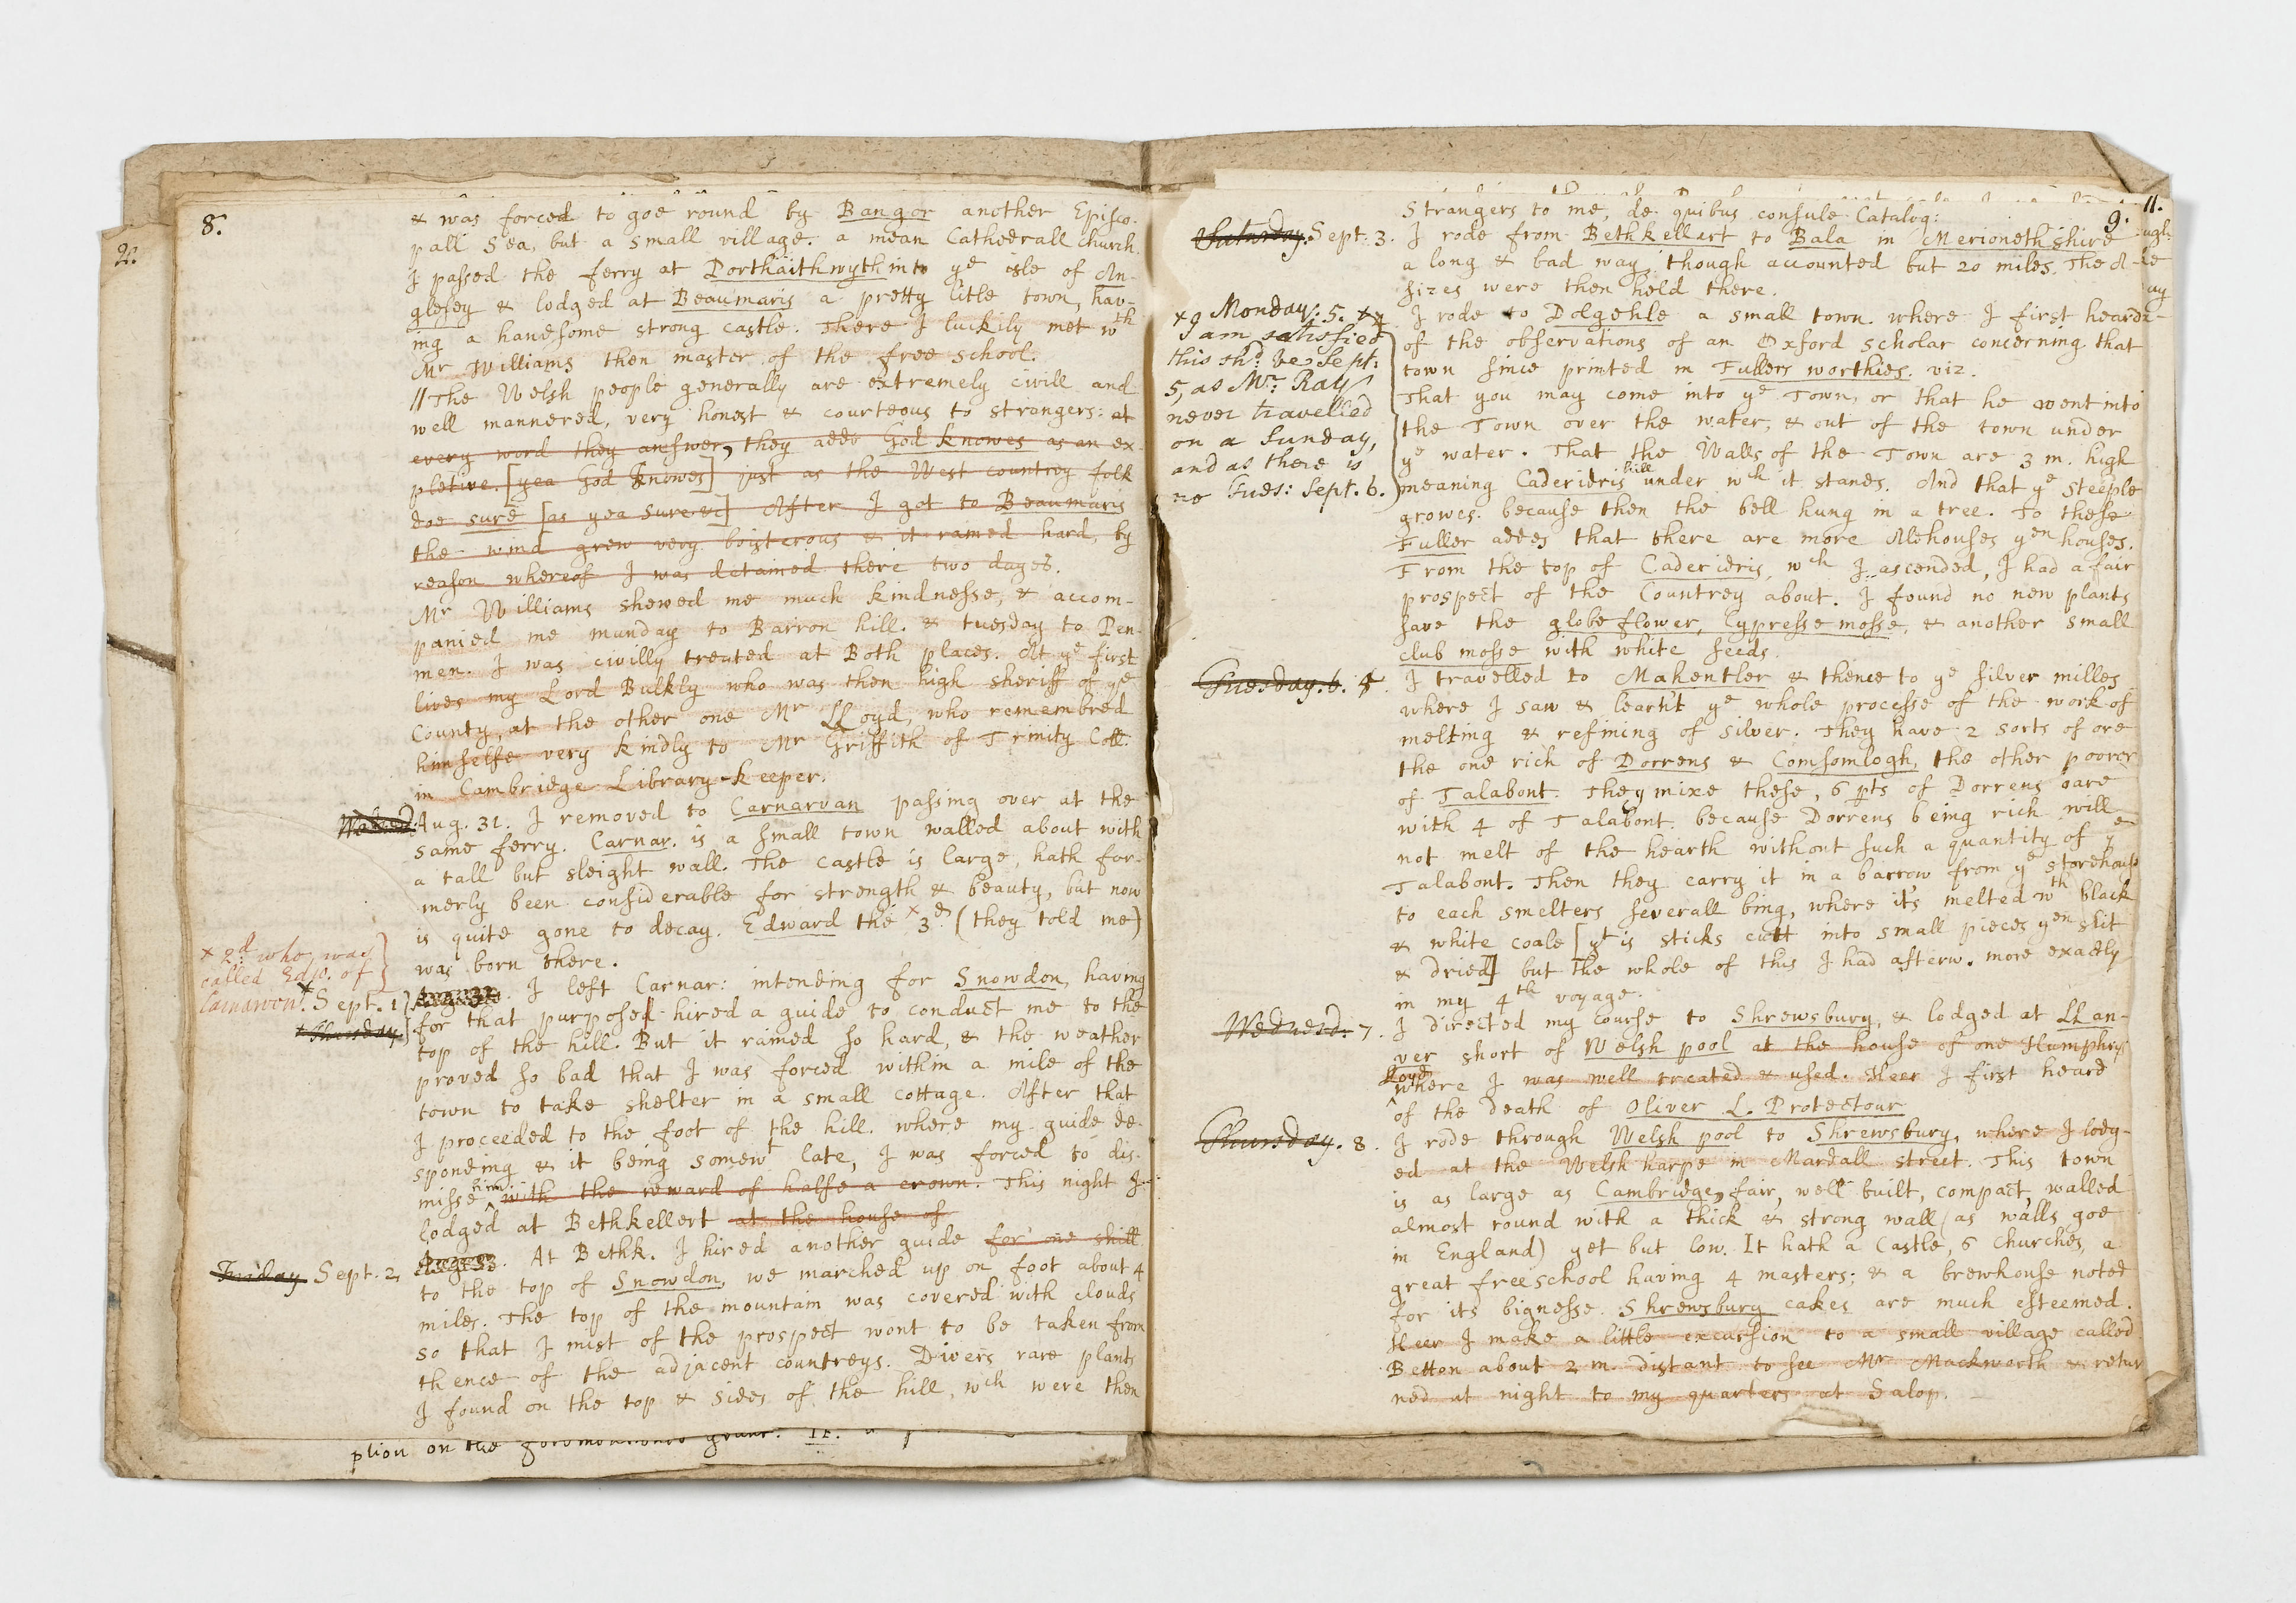 2.
8.
& was forced to goe round by Bangor another Episco-
pall Sea, but a small village. a mean Cathedrall church.
I passed the ferry at Porthaithwyth into yᵉ isle of An-
glesey & lodged at Beaumaris a pretty litle town, hav-
ing a handsome strong castle. There I luckily met wth
Mr Williams then master of the free school.
// The Welsh people generally are extremely civill and
well mannered, very honest & courteous to strangers: at
every word they answer, they adde God knowes as an ex-
pletive. [yea God knowes] just as the West countrey folk
doe sure [as yea sure &c] After I got to Beaumaris
the wind grew very boisterous & it rained hard, by
reason whereof I was detained there two dayes.
Mr Williams shewed me much kindnesse, & accom-
panied me munday to Barron hill. & tuesday to Pen-
men. I was civilly treated at Both places. At yᵉ first
lives my Lord Bulkly who was then high sheriff of yᵉ
County, at the other one Mr LLoyd, who remembred
himselfe very kindly to Mr Griffith of Trinity Coll:
in Cambridge Library-keeper.
Wednesd. Aug. 31. I removed to Carnarvan passing over at the
same ferry. Carnar. is a small town walled about with
a tall but sleight wall. The castle is large, hath for-
merly been considerable for strength & beauty, but now
is quite gone to decay. Edward the × 3d (they told me)
was born there.
× 2d who was
called Edw. of
Carnarvon.
Sept. 1) I left Carnar: intending for Snowdon, having
× Thursday] for that purposed hired a guide to conduct me to the
top of the hill. But it rained so hard, & the weather
proved so bad that I was forced within a mile of the
town to take shelter in a small cottage. After that
I proceeded to the foot of the hill. where my guide de-
sponding & it being somewt late, I was forced to dis-
misse him with the reward of halfe a crown. This night I
lodged at Bethkellert at the house of
Friday Sept. 2, At Bethk. I hired another guide for one shill
to the top of Snowdon, we marched up on foot about 4
miles. The top of the mountain was covered with clouds
so that I mist of the prospect wont to be taken from
thence of the adjacent countreys. Divers rare plants
I found on the top & sides of the hill, wch were then
9.
11.
Strangers to me, de quibus consule Catalog:
Saturday. Sept. 3. I rode from Bethkellert to Bala in Merionethshire
a long & bad way, though accounted but 20 miles. The A-
sizes were then held there.
× 9 Monday: 5. × 4
I am satisfied
this shd be Sept:
5, as Mr. Ray
never travelled
on a Sunday,
and as there is
no Tues: Sept. 6.
I rode to Dolgehle a small town. where I first heard
of the observations of an Oxford scholar concerning that
town since printed in Fullers worthies. viz.
That you may come into yᵉ Town, or that he went into
the Town over the water, & out of the town under
yᵉ water. That the Walls of the Town are 3 m. high
meaning Caderidris hill under wch it stands. And that yᵉ Steeple
growes. because then the bell hung in a tree. To these
Fuller addes that there are more Alehouses yen houses.
From the top of Caderidris, wch I ascended, I had a fair
prospect of the Countrey about. I found no new plants
save the globe flower, Cypresse mosse, & another small
club mosse with white seeds.
Tuesday. 6. I travelled to Makentler & thence to yᵉ silver milles
where I saw & learn't yᵉ whole processe of the work of
melting & refining of silver. They have 2 sorts of ore
the one rich of Dorrens & Comsomlogh, the other poorer
of Talabont. They mixe these, 6 pts of Dorrens oare
with 4 of Talabont. because Dorrens being rich will
not melt of the hearth without such a quantity of yᵉ
Talabont. Then they carry it in a barrow from yᵉ storehouse
to each smelters severall bing, where its melted wth black
& white coale [yt is sticks cutt into small pieces yen slit
& dried] but the whole of this I had afterw. more exactly
in my 4th voyage.
Wednesd. 7. I directed my course to Shrewsbury, & lodged at LLan-
ver short of Welsh pool at the house of one Humphry
Loyd
where I was well treated & used. Heer I first heard
of the death of Oliver L. Protectour
Thursday. 8. I rode through Welsh pool to Shrewsbury, where I lodg-
ed at the Welsh harpe in Mardall street. This town
is as large as Cambridge, fair, well built, compact, walled
almost round with a thick & strong wall (as walls goe
in England) yet but low. It hath a Castle, 6 Churches, a
great freeschool having 4 masters; & a brewhouse noted
for its bignesse. Shrewsbury cakes are much esteemed.
Heer I make a little excursion to a small village called
Betton about 2 m. distant to see Mr Mackworth & retur
ned at night to my quarters at Salop.